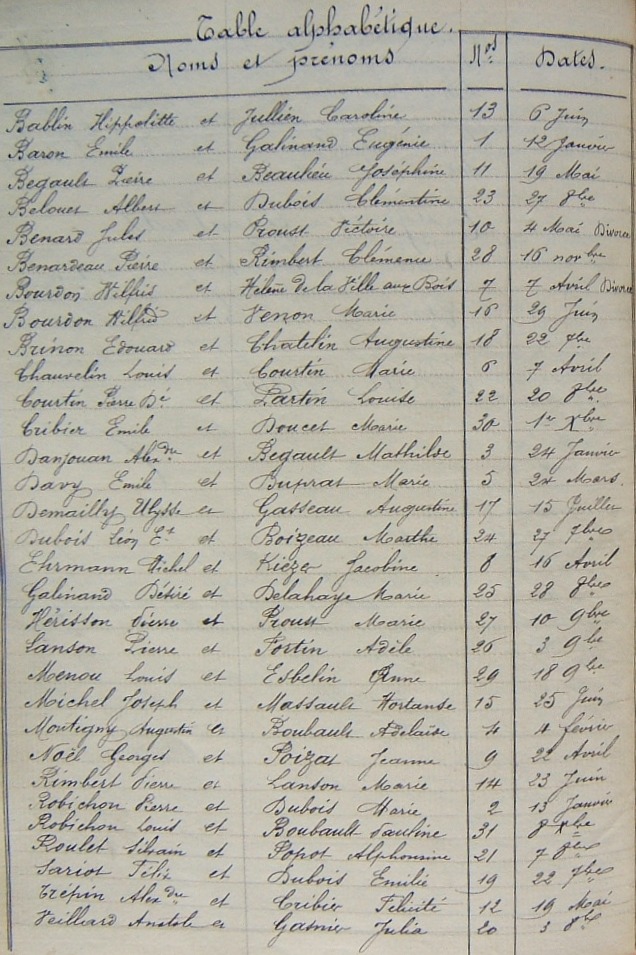 Table alphabétique.
Noms et prénoms Nos Dates.
Bablin Hippolitte et Jullien Caroline 13 6 Juin
Baron Emile et Galinand Eugénie 1 12 Janvier
Begault Pierre et Beaulieu Joséphine 11 19 Mai
Belouet Albert et Dubois Clémentine 23 27 8bre
Benard Jules et Proust Victoire 10 4 Mai Divorce
Benardeau Pierre et Rimbert Clémence 28 16 novbre
Bourdon Wilfrid et Helène de la Ville aux Bois 7 7 Avril Divorce
Bourdon Wilfrid et Venon Marie 16 29 Juin
Brinon Edouard et Chatelin Augustine 18 22 7bre
Chauvelin Louis et Courtin Marie 6 7 Avril
Courtin Pierre Dé et Partin Louise 22 20 8bre
Cribier Emile et Doucet Marie 30 1er Xbre
Danjouan Alexdre et Begault Mathilde 3 24 Janvier
Davy Emile et Duprat Marie 5 24 Mars.
Demailly Ulysse et Gasseau Augustine 17 15 Juillet
Dubois Léon Et et Boizeau Marthe 24 27 7bre
Ehrmann Michel et Kiézer Jacobine 8 16 Avril
Galinand Désiré et Delahaye Marie 25 28 8bre
Hérisson Pierre et Proust Marie 27 10 9bre
Lanson Pierre et Fortin Adèle 26 3 9bre
Menou Louis et Esbelin Anne 29 18 9bre
Michel Joseph et Massault Hortanse 15 25 Juin
Montigny Augustin et Boubault Adelaïde 4 4 février
Noël Georges et Poizat Jeanne 9 22 Avril
Rimbert Pierre et Lanson Marie 14 23 Juin
Robichon Pierre et Dubois Marie 2 13 Janvier
Robichon Louis et Boubault Pauline 31 8 Xbre
Roulet Silvain et Popot Alphonsine 21 7 8bre
Sariot Félix et Dubois Emilie 19 22 7bre
Trépin Alexdre et Cribier Félicité 12 19 Mai
Veilliard Anatole et Gasnier Julia 20 3 8bre